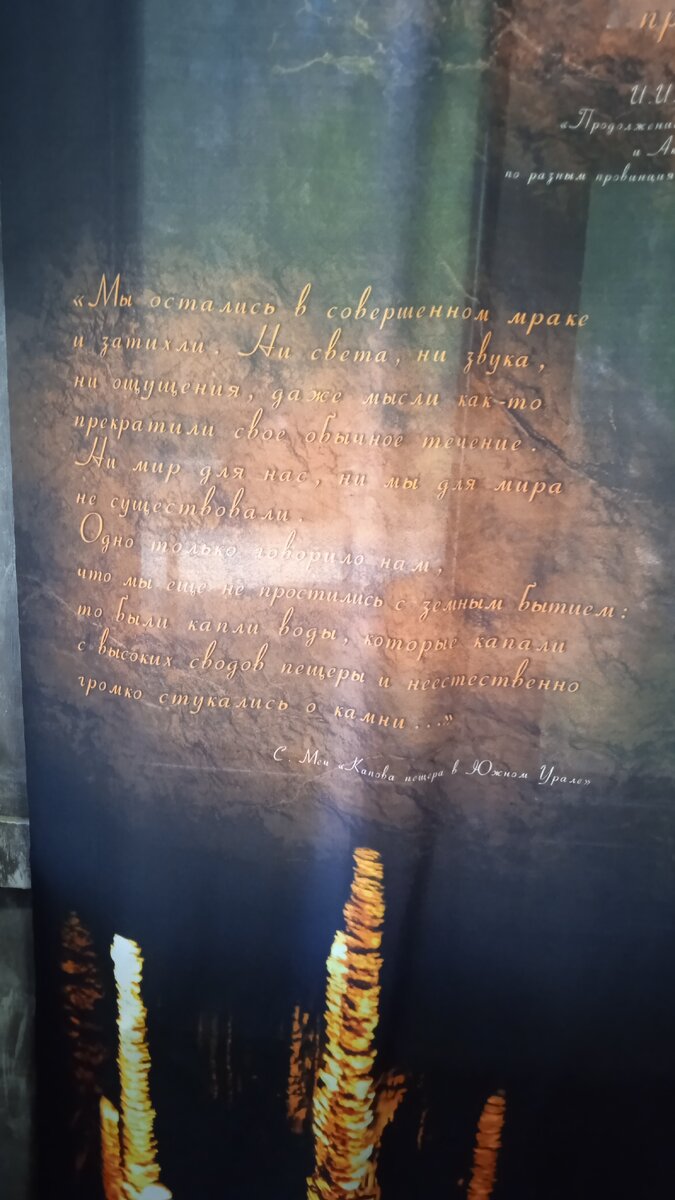 пр
И.И.
«Продолжение
и Ак
по разным провинция
«Мы остались в совершенном мраке
и затихли. Ни света, ни звука,
ни ощущения, даже мысли как-то
прекратили свое обычное течение.
Ни мир для нас, ни мы для мира
не существовали.
Одно только говорило нам,
что мы еще не простились с земным бытием:
то были капли воды, которые капали
с высоких сводов пещеры и неестественно
громко стукались о камни...»
С. Меч «Капова пещера в Южном Урале»